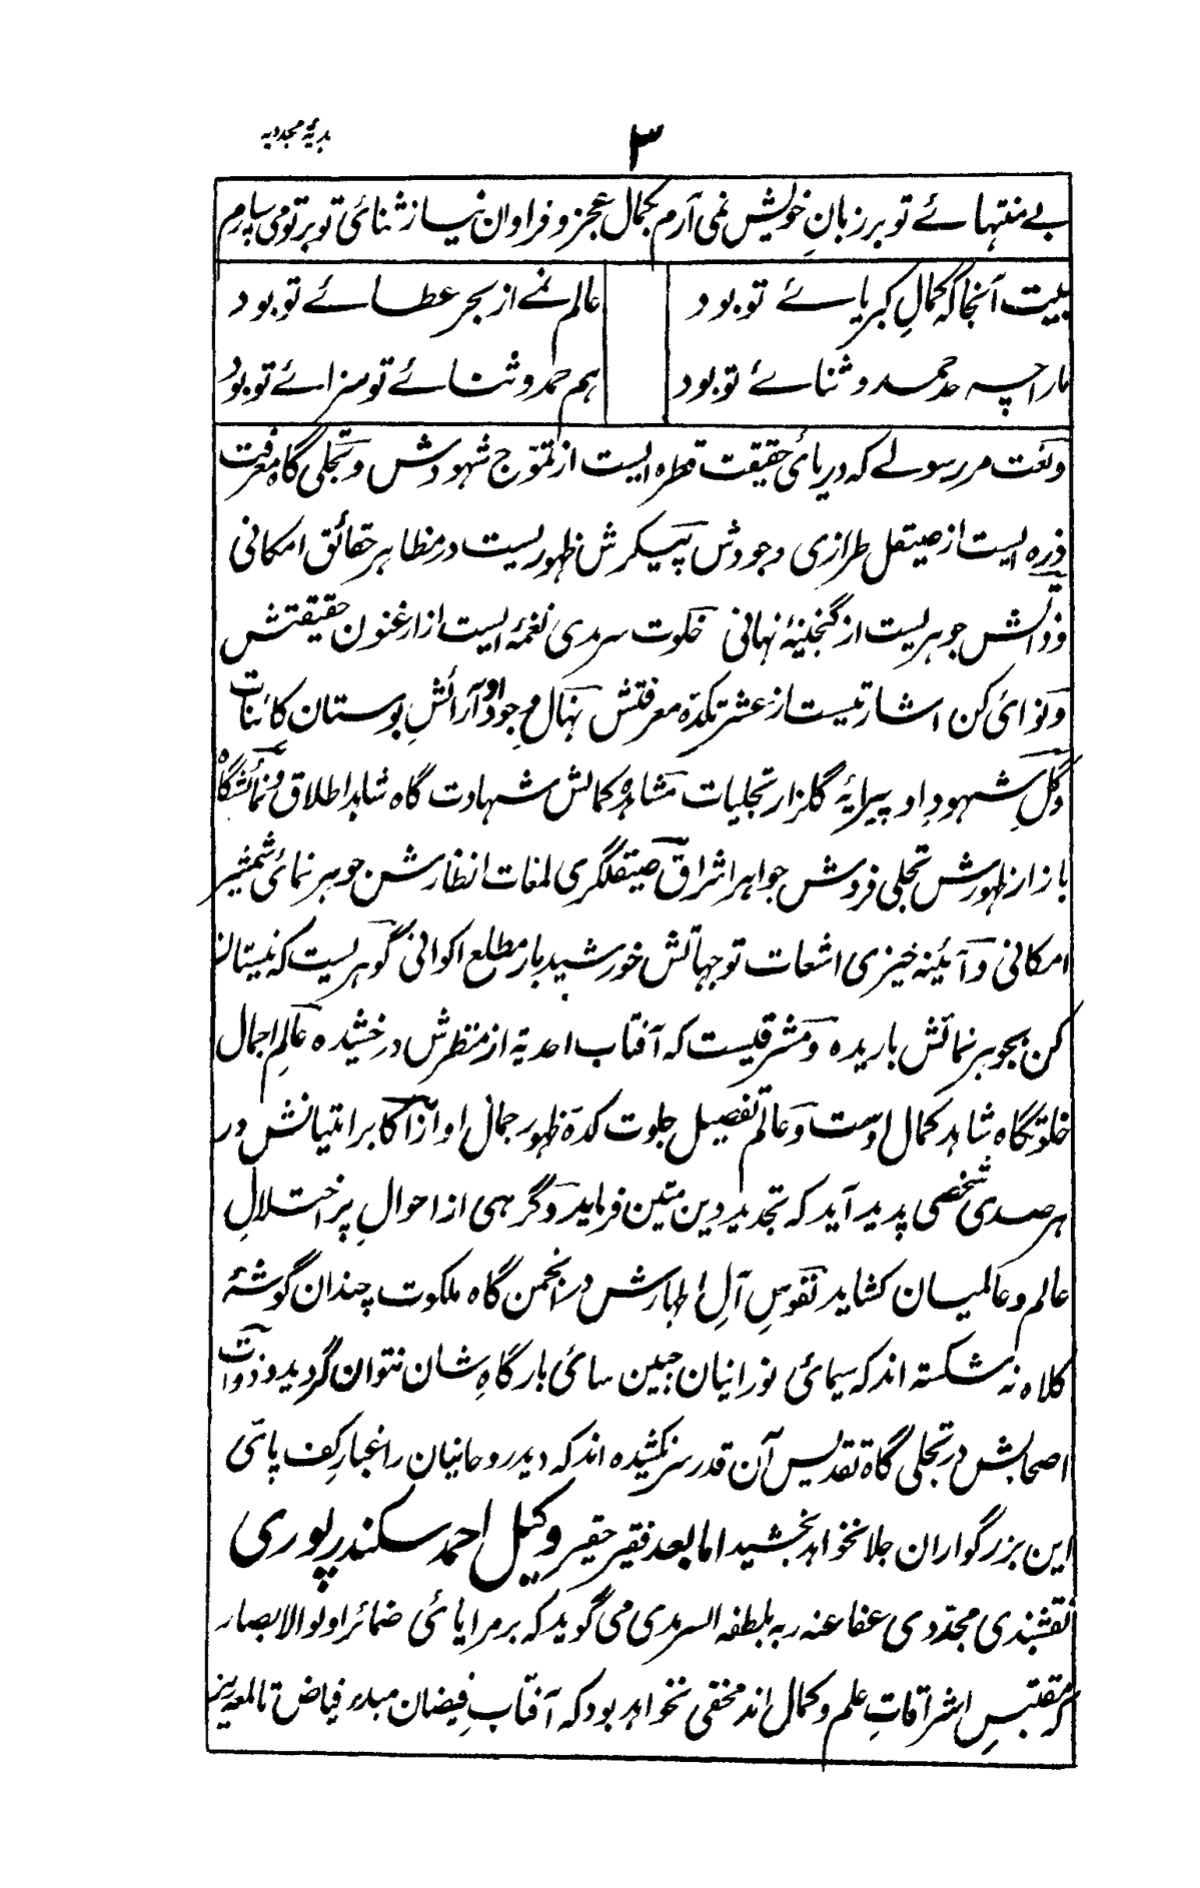 ہدیۂ مجددیہ
۳
بے منتہائے تو بر زبانِ خویش نمی آرم بکمال عجز و فراوان نیاز ثنائی تو بر تو می سپارم
بیت آنجا کہ کمالِ کبریائے تو بود عالم نمے از بحر عطائے تو بود
ما را چہ حد حمد و ثنائے تو بود ہم حمد و ثنائے تو سزائے تو بود
و نعت مر رسولے کہ دریائ حقیقت قطرہ ایست از تموّج شہودش و تجلی گاہ معرفت
ذرہ ایست از صیقل طرازی وجودش پیکرش ظہوریست در مظاہر حقائق امکانی
و ذاتش جوہریست از گنجینۂ نہانی خلوت سرمدی نغمۂ ایست از ارغنون حقیقتش
و نوائ کن اشارتیست از عشرتکدۂ معرفتش نہال وجود او آرائش بوستان کائنات
و گلِ شہودِ او پیرایۂ گلزار تجلیات مشاہدۂ کمالش شہادت گاہ شاہد اطلاق و نمائشگاہ
بازار ظہورش تجلی فروش جواہر اشراق صیقلگری لمعات انظارش جوہر نمائ شمشیر
امکانی و آئینہ خیزی اشعات توجہاتش خورشید بار مطلع اکوانی گوہریست کہ نیستان
کن بجوہر نمائش باریدہ و مشرقیست کہ آفتاب احدیۃ از منظرش درخشیدہ عالم اجمال
خلوتگاہ شاہد کمال اوست و عالم تفصیل جلوت کدۂ ظہور جمال او از اکابر امتیانش در
ہر صدی شخصی پدید آید کہ تجدید دین متین فرماید و گرہی از احوالِ پر اختلالِ
عالم و عالمیان کشاید نفوسِ آلِ اطہارش در انجمن گاہ ملکوت چندان گوشۂ
کلاہ نہ شکستہ اند کہ سیمائ نورانیان جبین سائ بارگاہِ شان نتوان گردید و ذوات
اصحابش در تجلی گاہ تقدیس آن قدر سر نکشیدہ اند کہ دید روحانیان را غبار کف پائی
این بزرگواران جلا نخواہد بخشید اما بعد فقیر حقیر وکیل احمد سکندرپوری
نقشبندی مجدّدی عفا عنہ ربہ بلطفہ السرمدی می گوید کہ بر مرایائ ضمائر اولو الابصار
کہ مقتبسِ اشراقاتِ علم و کمال اند مخفی نخواہد بود کہ آفتابِ فیضان مبدء فیاض تا لمعہ ریز